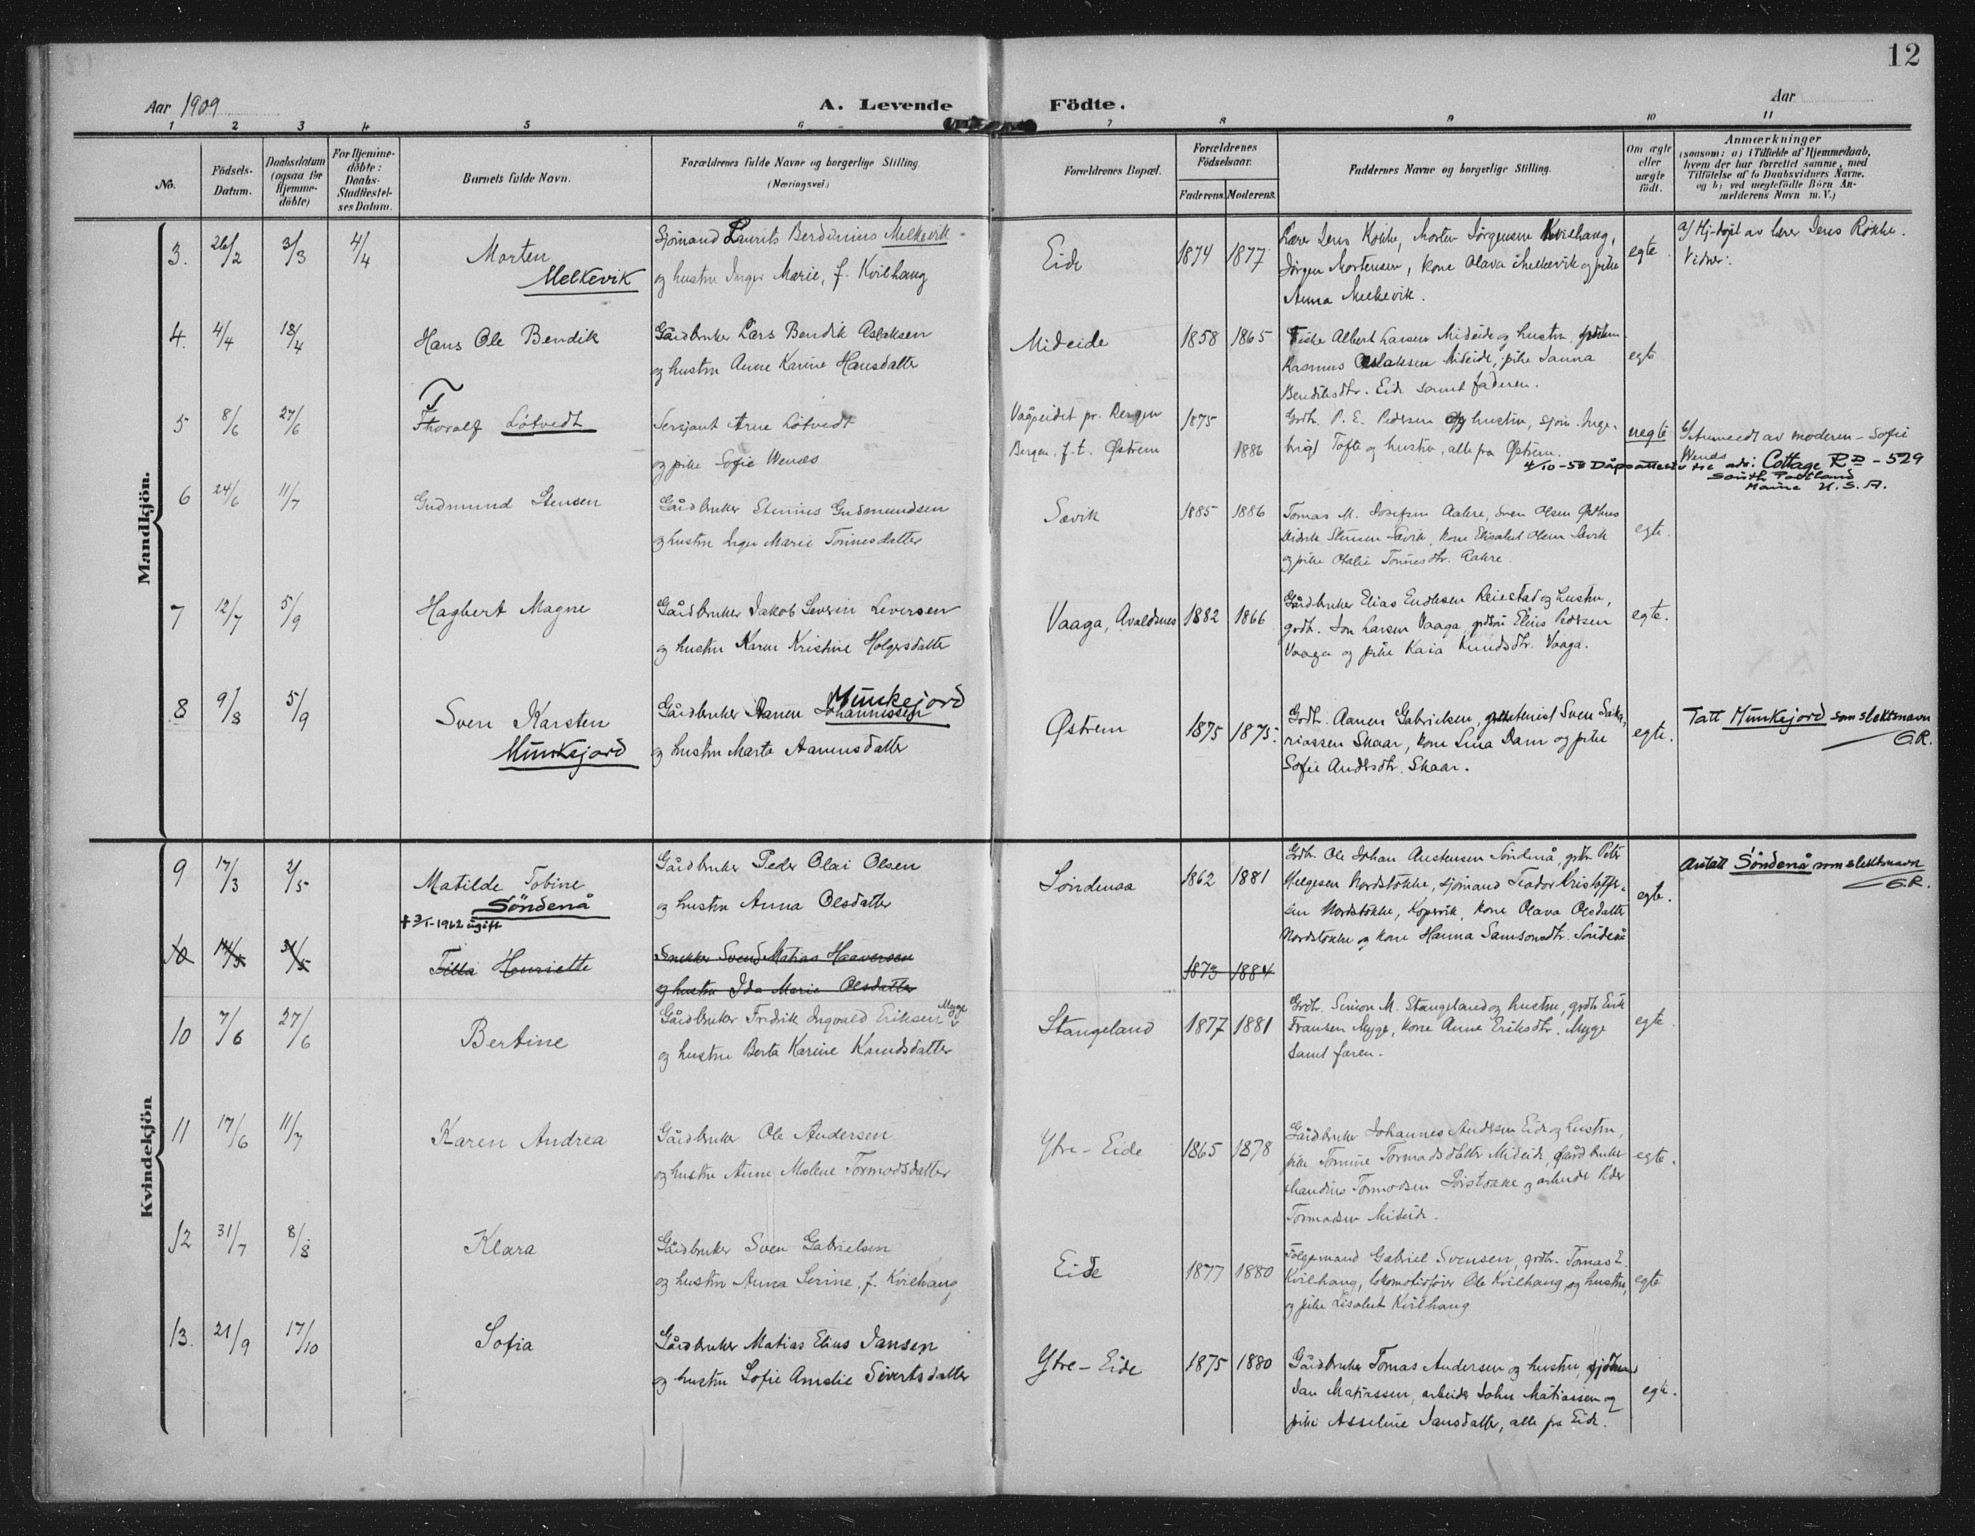 12
Aar 1909
A. Levende Födte.
Aar
1 2 3 4 5 6 7 8 9 10 11
No.
Födsels-Datum.
Daabsdatum (ogsaa for Hjemme-döbte)
For Hjemme-döbte: Daabs-Stadfæstel-ses Datum.
Barnets fulde Navn.
Forældrenes fulde Navne og borgerlige Stilling.
(Næringsvei.)
Forældrenes Bopæl.
Forældrenes Födselsaar.
Faderens. Moderens.
Faddernes Navne og borgerlige Stilling.
Om ægte eller uægte födt.
Anmærkninger
(saasom: a) i Tilfælde af Hjemmedaab,
hvem der har forrettet samme, med
Tilföielse af to Daabsvidners Navne,
og b) ved uægtefödte Börn An-
melderens Navn m. V.)
Mandkjön.
3. 26/2 3/3 4/4
Morten
Melkevik
Sjömand Laurits Berdinius Melkevik
og hustru Inger Marie, f. Kvilhaug
Eide
1874 1877
Lærer Jens Rökke, Morten Jörgensen Kvilhaug,
Jörgen Mortensen, kone Olava Melkevik og pike
Anna Melkevik.
egte
a/ Hj-döpt av lærer Jens Rökke.
Vidner:
4. 4/4 18/4
Hans Ole Bendik
Gårdbruker Lars Bendik Aslaksen
og hustru Anne Karine Hansdatter
Mideide
1858 1865
Albert Larsen Mideide og hustru,
Rasmus Aslaksen Mideide, pike Janna
Bendiksdtr. Eide samt faderen.
egte
5 8/6 27/6
T
Thoralf Løtvedt
Sersjant Arne Løtvedt
og pike Sofie Wenæs
Vågseidet pr. Bergen
Bergen. f.t. Østrem
1875
1886
Grdbr. P. E. Pedersen og hustru, sjöm. Inge-
brigt Tofte og hustru, alle fra Østrem.
uegte
b/ Anmeldt av moderen - Sofie
Wenæs
4/10-58 Dåpsattest adr: Cottage RD - 529
South Portland
Maine U.S.A.
6 24/6 11/7
Gudmund Stensen
Gårdbruker Stenius Gudmundsen
og hustru Inger Marie Tönnesdatter
Sævik
1885 1886
Tomas M. Josefsen Aakre, Sven Olsen Østhus
Didrik Stensen Sævik, kone Elisabet Olsen Sævik
og pike Otalie Tönnesdtr. Aakre.
egte.
7 12/7 5/9
Hagbert Magne
Gårdbruker Jakob Severin Seversen
og hustru Karen Kristine Holgersdatter
Vaaga, Avaldsnes
1882 1866
Gårdbruker Elias Endresen Reiestad og hustru,
grdbr. Jon Larsen Vaaga, grdsön Elius Pedersen
Vaaga og pike Kaia Knudsdtr. Vaaga.
egte.
8 9/8 5/9
Sven Karsten
Munkejord
Munkejord
Gårdbruker Aanen Johannessen
og hustru Marta Aanensdatter
Østrem
1875 1875.
Grdbr. Aanen Gabrielsen, Sven Saka-
riassen Skaar, kone Lina Dam og pike
Sofie Andersdtr. Skaar.
egte.
Tatt Munkejord som slektsnavn
G.R.
Kvindekjön
9 17/3 2/5
Matilde Tobine
Söndenå
† 3/1-1962 ugift
Gårdbruker Peder Olai Olsen
og hustru Anna Olsdatter
Söndenaa
1862 1881
Grdbr. Ole Johan Austensen Söndenå, grdbr. Peter
Helgesen Nordstokke, sjömand Teodor Kristoffer-
sen Nordstokke, Kopervik, kone Olava Olsdatter
Nordstokke og kone Hanna Samsonsdtr. Söndenå
egte.
Antatt Söndenå som slektsnavn
G.R.
10 14/3 31/5
Tilla Henriette
Snekker Svend Matias Haaversen
og hustru Ida Marie Olsdatter
1873 1884
10 7/6 27/6
Bertine
Gårdbruker Fridrik Ingvald Eriksen Mygge
og hustru Berta Karine Knudsdatter
Stangeland
1877 1881
Grdbr. Simon M. Stangeland og hustru, grdbr. Erik
Fransen Mygge, kone Anne Eriksdtr. Mygge
samt faren.
egte
11 17/6 11/7
Karen Andrea
Gårdbruker Ole Andersen
og hustru Anne Malene Tormodsdatter
Ytre-Eide
1865 1878
Gårdbruker Johannes Andersen Eide og hustru,
pike Tomine Tormodsdatter Mideide, gårdbruker
Mandius Tormodsen Sörstokke og arbeider Peder
Tormodsen Mideide.
egte.
12 31/7 8/8
Klara
Gårdbruker Sven Gabrielsen
og hustru Anna Serine, f. Kvilhaug
Eide
1877 1880
Folgemand Gabriel Svensen, grdbr. Tomas T.
Kvilhaug, lokomotivförer Ole Kvilhaug og hustru,
og pike Lisabet Kvilhaug
egte
13. 21/9 17/10
Sofia
Gårdbruker Matias Elius Jansen
og hustru Sofie Amalie Sivertsdatter
Ytre-Eide
1875 1880
Gårdbruker Tomas Andersen og hustru,
Jan Matiassen, arbeider John Matiassen og
pike Asseline Jansdatter, alle fra Eide.
egte.